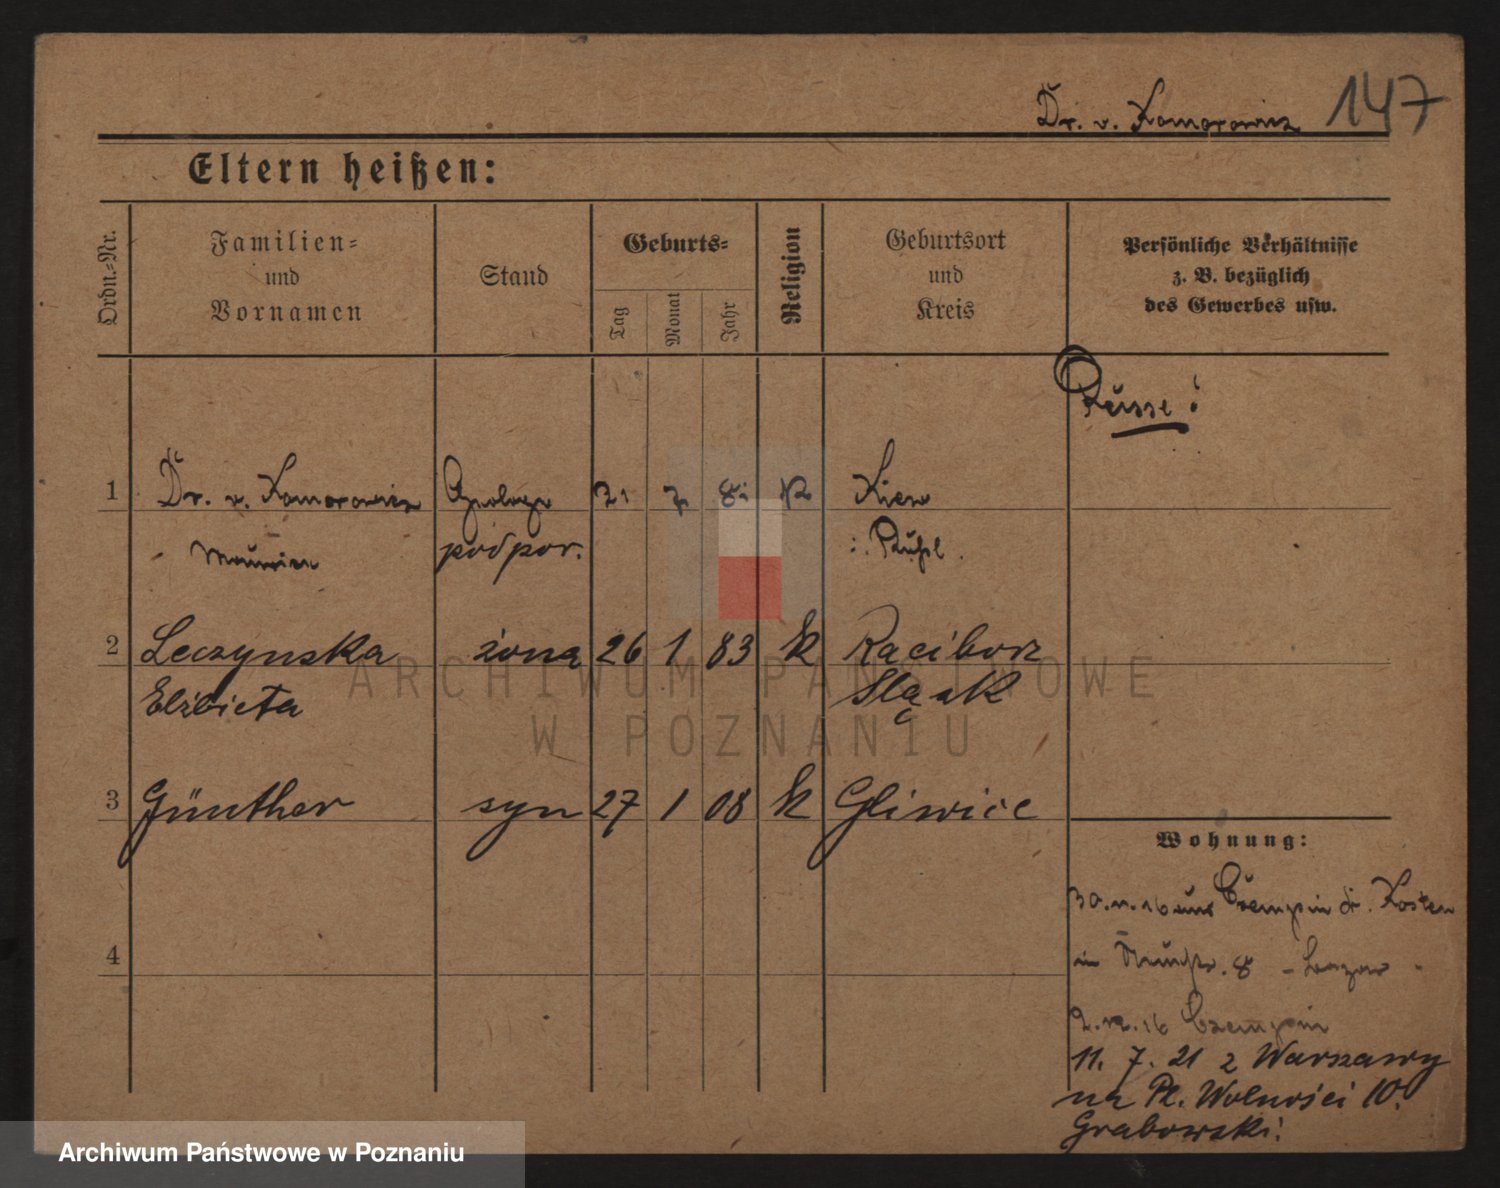 Dr. v. Komorowicz 147
Eltern heißen:
Ordn.-Nr.
Familien-
und
Vornamen
Stand
Geburts-
Tag
Monat
Jahr
Religion
Geburtsort
und
Kreis
Persönliche Verhältnisse
z. B. bezüglich
des Gewerbes usw.
Russe!
1 Dr. v. Komorowicz Geologe 21 7 81 K Kiew
Maurice podpor. i. Rußl.
2 Leczynska żona 26 1 83 k Racibórz
Elżbieta Sląsk
3 Günther syn 27 1 08 k Gliwice
4
Wohnung:
30.11.16 aus Czempin Kr. Kosten
in 8 - Lazar -
2.12.16 Czempin
11. 7. 21 z Warszawy
na Pl. Wolności 10.
Grabowski.
ARCHIWUM PAŃSTWOWE
W POZNANIU
Archiwum Państwowe w Poznaniu